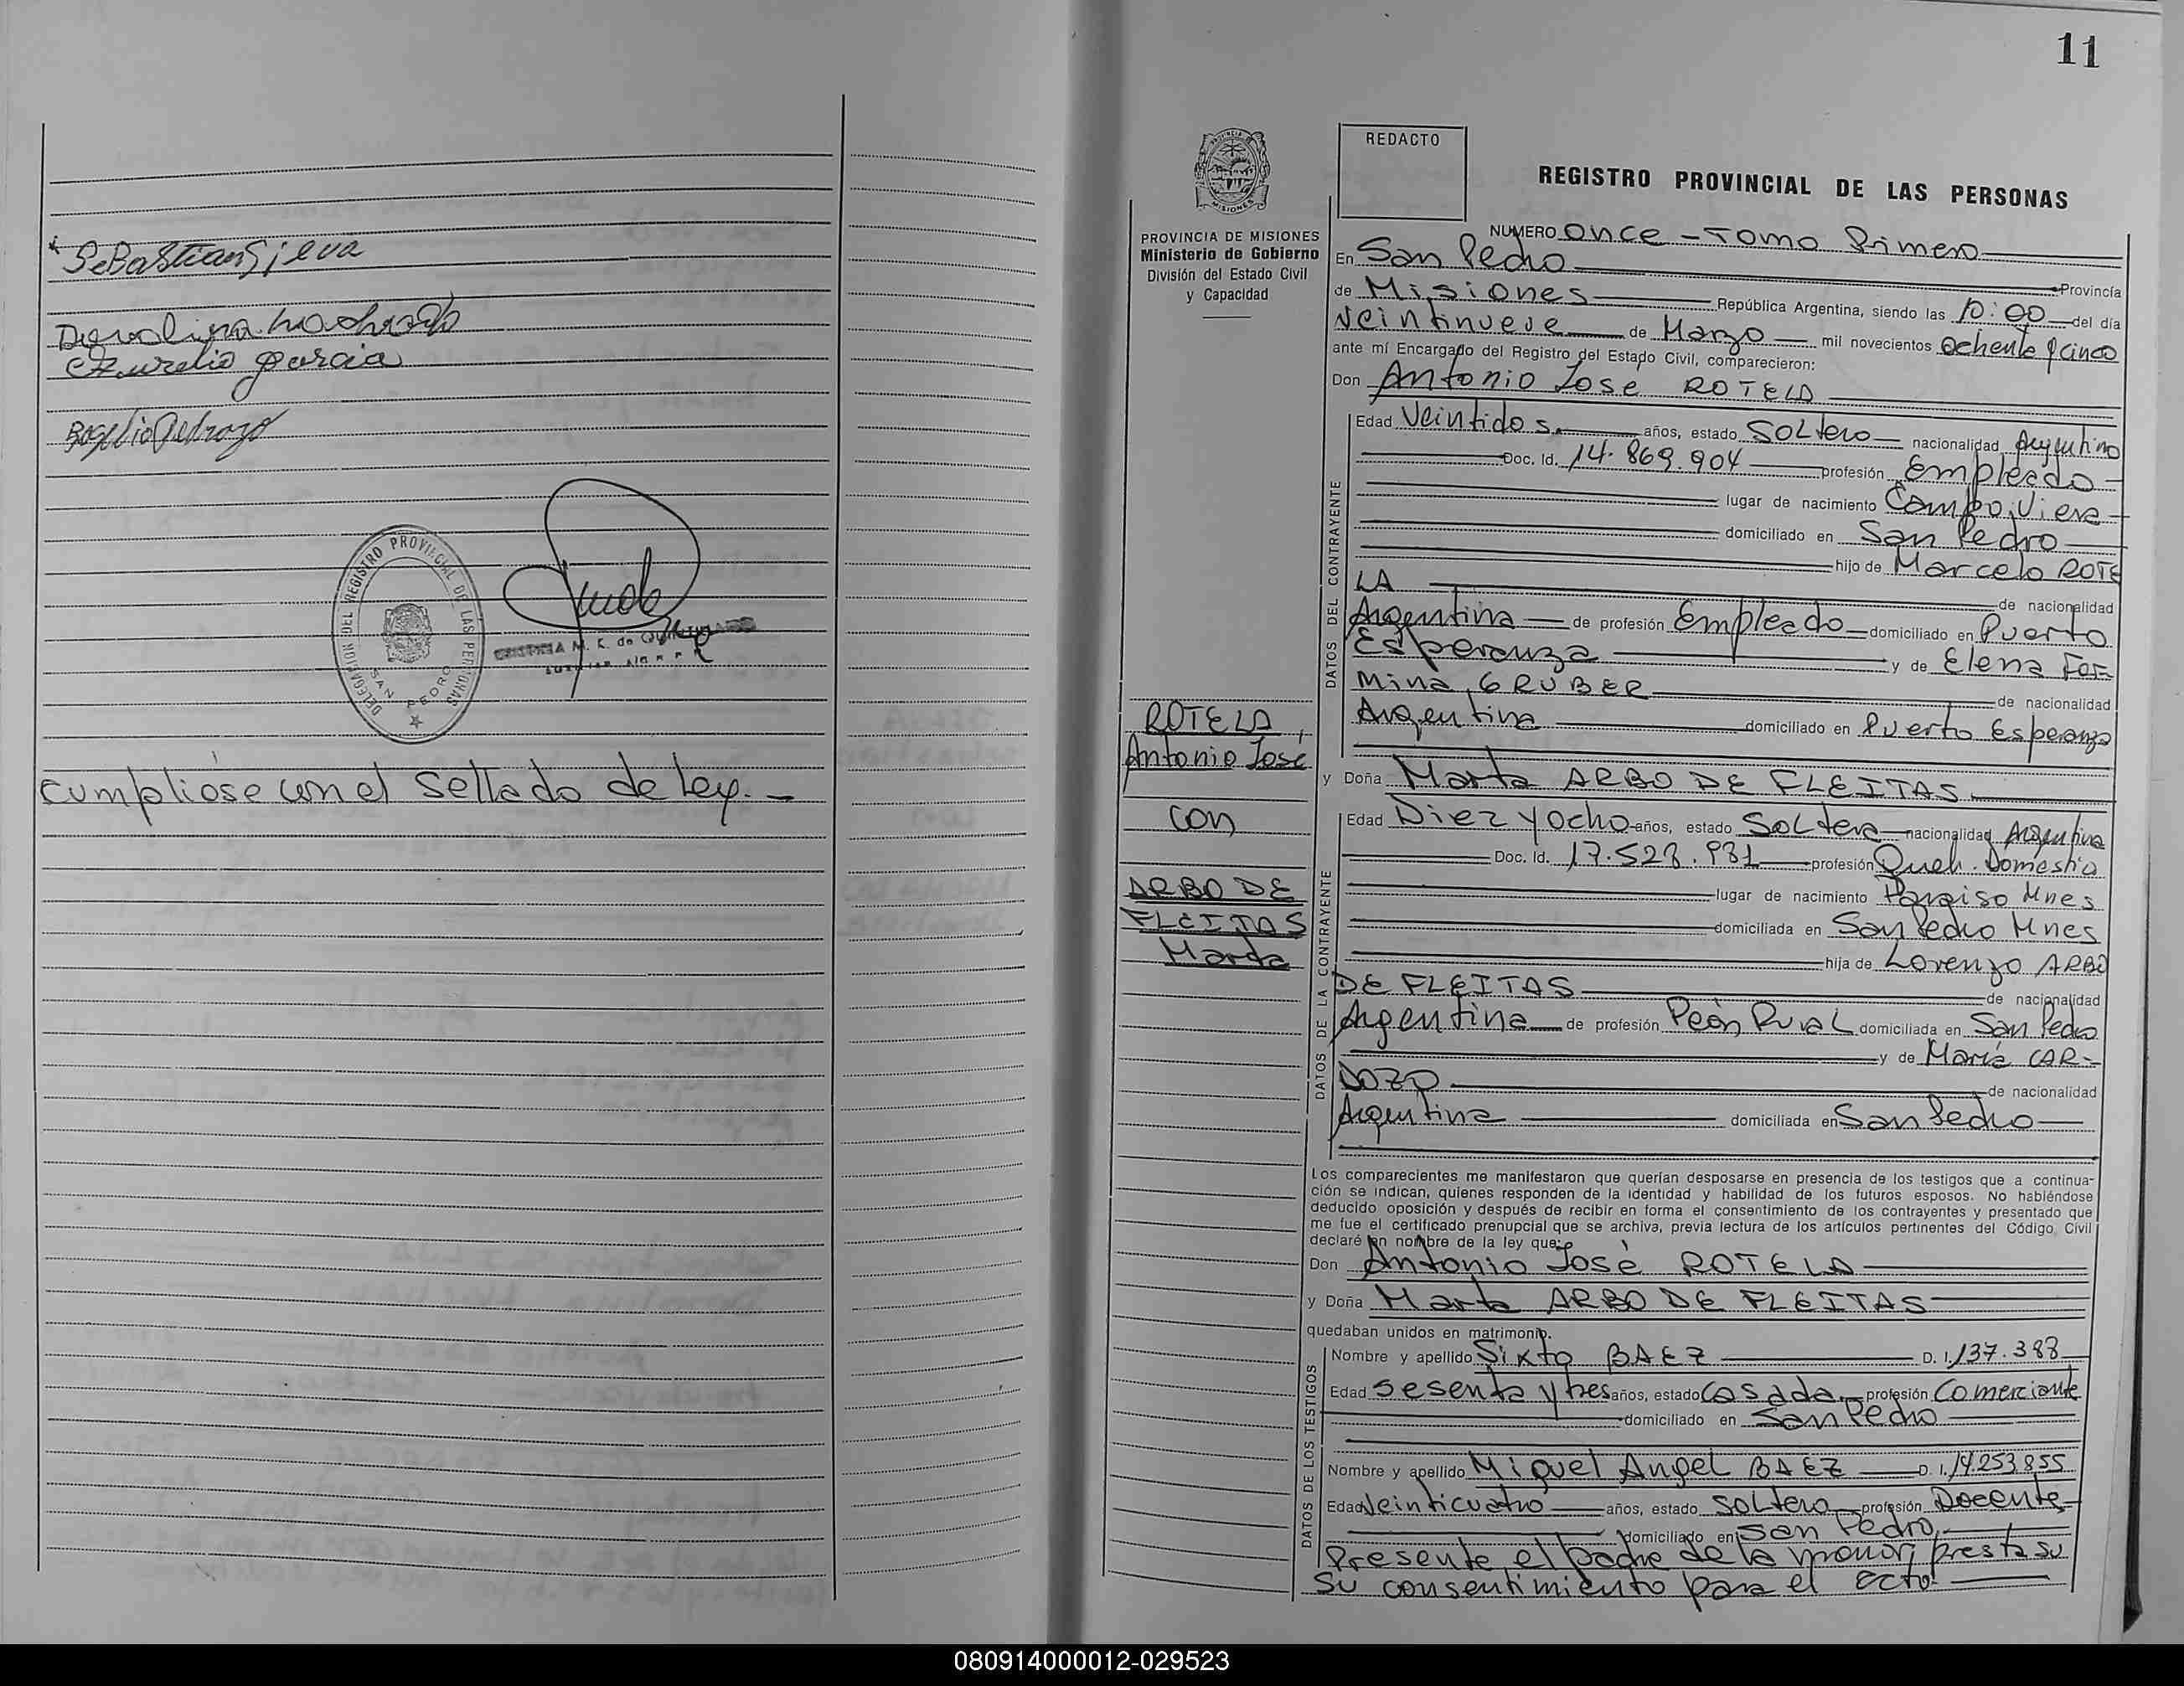 Sebastian Silva
Aurelio Garcia
Rogelio Pedrozo
DELEGACION DEL REGISTRO PROVINCIAL DE LAS PERSONAS
SAN PEDRO
CRISTINA M. K. de
Cumplióse con el Sellado de Ley.-
11
PROVINCIA DE MISIONES
Ministerio de Gobierno
División del Estado Civil
y Capacidad
ROTELA,
Antonio José
con
ARBO DE
FLEITAS
Marta
REDACTO
REGISTRO PROVINCIAL DE LAS PERSONAS
NUMERO once - Tomo Primero
En San Pedro Provincia
de Misiones República Argentina, siendo las 10:00 del día
Veintinueve de Marzo mil novecientos ochenta y cinco
ante mí Encargado del Registro del Estado Civil, comparecieron:
Don Antonio Jose ROTELA
DATOS DEL CONTRAYENTE
Edad Veintidos años, estado Soltero nacionalidad Argentino
Doc. Id. 14.869.904 profesión Empleado
lugar de nacimiento Campo Viera
domiciliado en San Pedro
hijo de Marcelo ROTE
LA de nacionalidad
Argentina de profesión Empleado domiciliado en Puerto
Esperanza y de Elena Fer-
mina GRUBER de nacionalidad
Argentina domiciliado en Puerto Esperanza
y Doña Marta ARBO DE FLEITAS
DATOS DE LA CONTRAYENTE
Edad Diez y ocho años, estado Soltera nacionalidad Argentina
Doc. Id. 17.523.931 profesión Queh. Domestic
lugar de nacimiento Paraiso Mnes
domiciliada en San Pedro Mnes
hija de Lorenzo ARBO
DE FLEITAS de nacionalidad
Argentina de profesión Peón Rural domiciliada en San Pedro
y de María CAR-
DOZO de nacionalidad
Argentina domiciliada en San Pedro
Los comparecientes me manifestaron que querían desposarse en presencia de los testigos que a continua-
ción se indican, quienes responden de la identidad y habilidad de los futuros esposos. No habiéndose
deducido oposición y después de recibir en forma el consentimiento de los contrayentes y presentado que
me fue el certificado prenupcial que se archiva, previa lectura de los artículos pertinentes del Código Civil
declaré en nombre de la ley que:
Don Antonio José ROTELA
y Doña Marta ARBO DE FLEITAS
quedaban unidos en matrimonio.
DATOS DE LOS TESTIGOS
Nombre y apellido Sixto BAEZ D. I. 137.388
Edad Sesenta y tres años, estado Casada profesión Comerciante
domiciliado en San Pedro
Nombre y apellido Miguel Angel BAEZ D. I. 14.253.855
Edad Veinticuatro años, estado Soltero profesión Docente
domiciliado en San Pedro,
Presente el padre de la menor, presta su
su consentimiento para el acto.
080914000012-029523